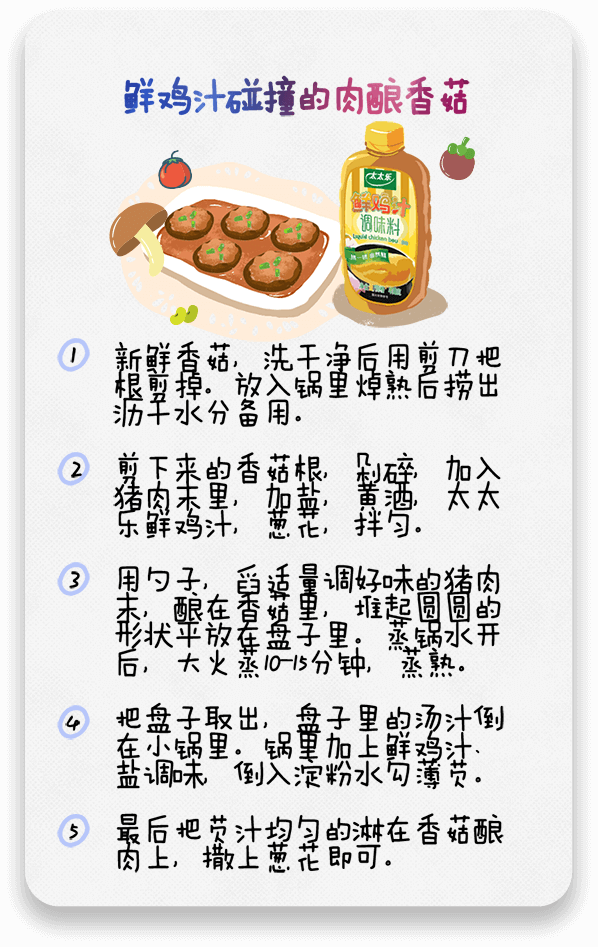 鲜鸡汁碰撞的肉酿香菇
太太乐
鲜鸡汁
调味料
Liquid chicken
1
新鲜香菇，洗干净后用剪刀把
根剪掉。放入锅里焯熟后捞出
沥干水分备用。
2
剪下来的香菇根，剁碎，加入
猪肉末里，加盐，黄酒，太太
乐鲜鸡汁，葱花，拌匀。
3
用勺子，舀适量调好味的猪肉
末，酿在香菇里，堆起圆圆的
形状平放在盘子里。蒸锅水开
后，大火蒸10-15分钟，蒸熟。
4
把盘子取出，盘子里的汤汁倒
在小锅里。锅里加上鲜鸡汁、
盐调味，倒入淀粉水勾薄芡。
5
最后把芡汁均匀的淋在香菇酿
肉上，撒上葱花即可。